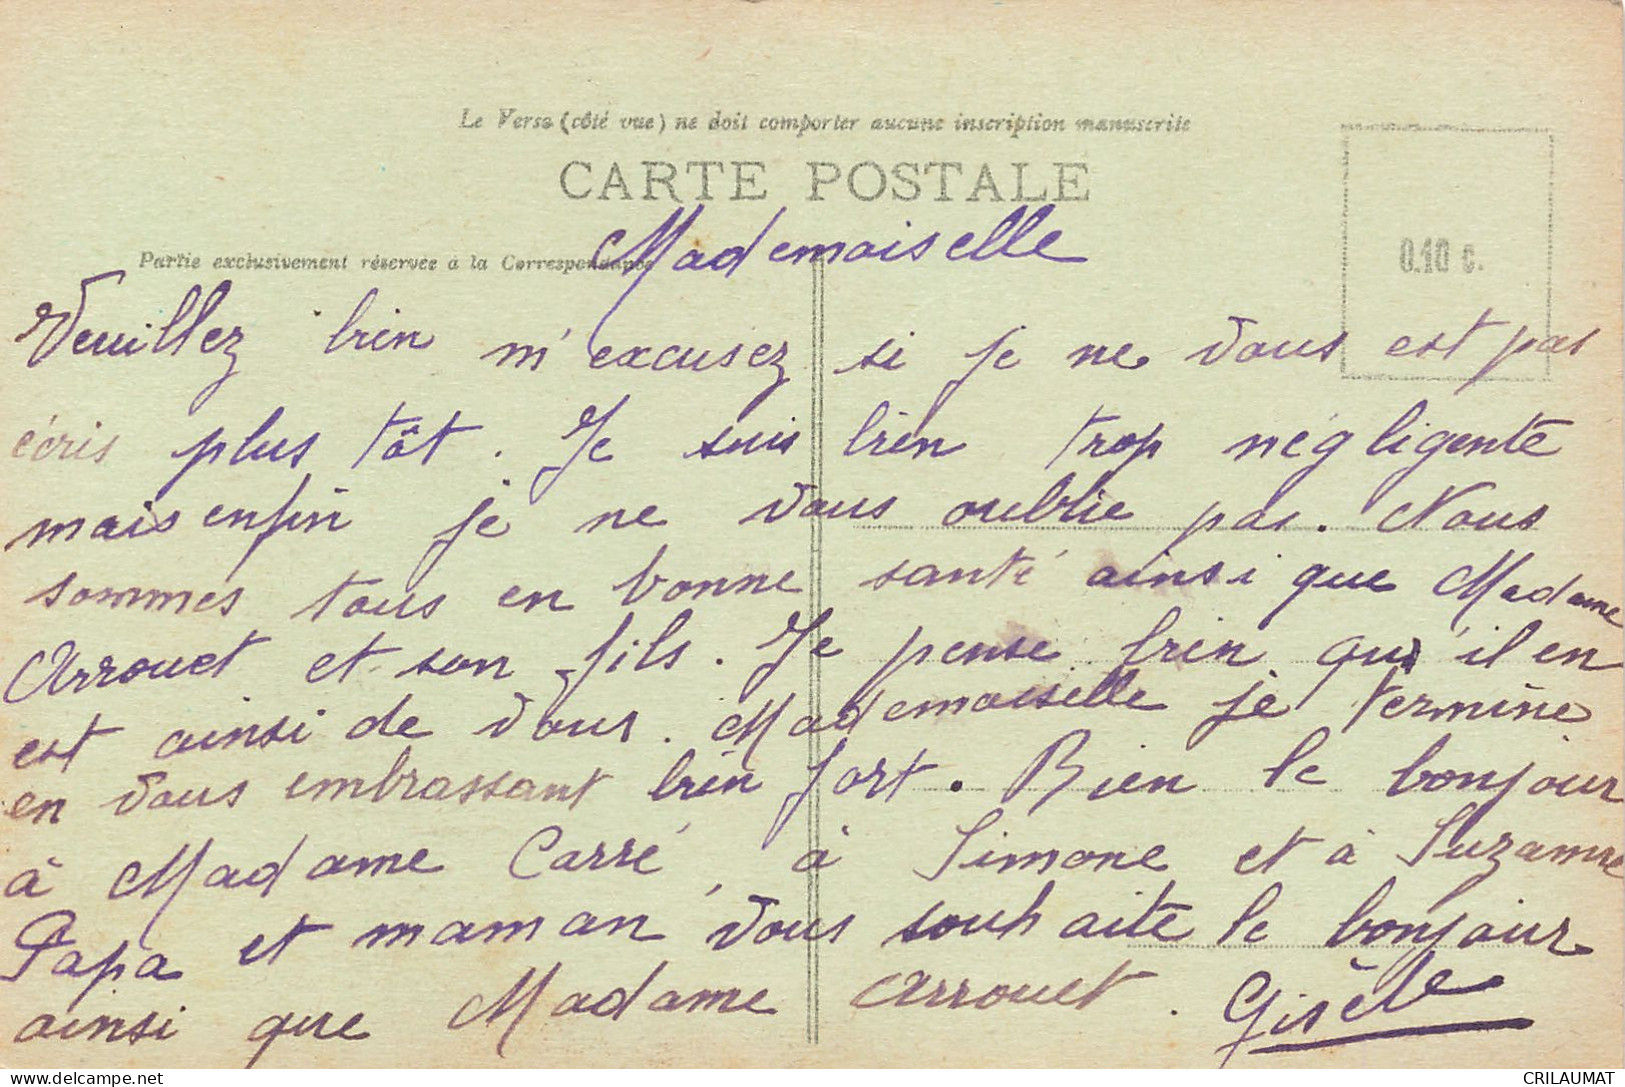 Le Verso (côté vue) ne doit comporter aucune inscription manuscrite
CARTE POSTALE
Partie exclusivement réservée à la Correspondance
0.10 c.
Mademoiselle
Veuillez bien m'excusez si je ne vous est pas
écris plus tôt. Je suis bien trop négligente
mais enfin je ne vous oublie pas. Nous
sommes tous en bonne santé ainsi que Madame
Arrouet et son fils. Je pense bien qu'il en
est ainsi de vous. Mademoiselle je termine
en vous embrassant bien fort. Bien le bonjour
à Madame Carré, à Simone et à Suzanne
Papa et maman vous souhaite le bonjour
ainsi que Madame Arrouet. Gisèle
CRILAUMAT